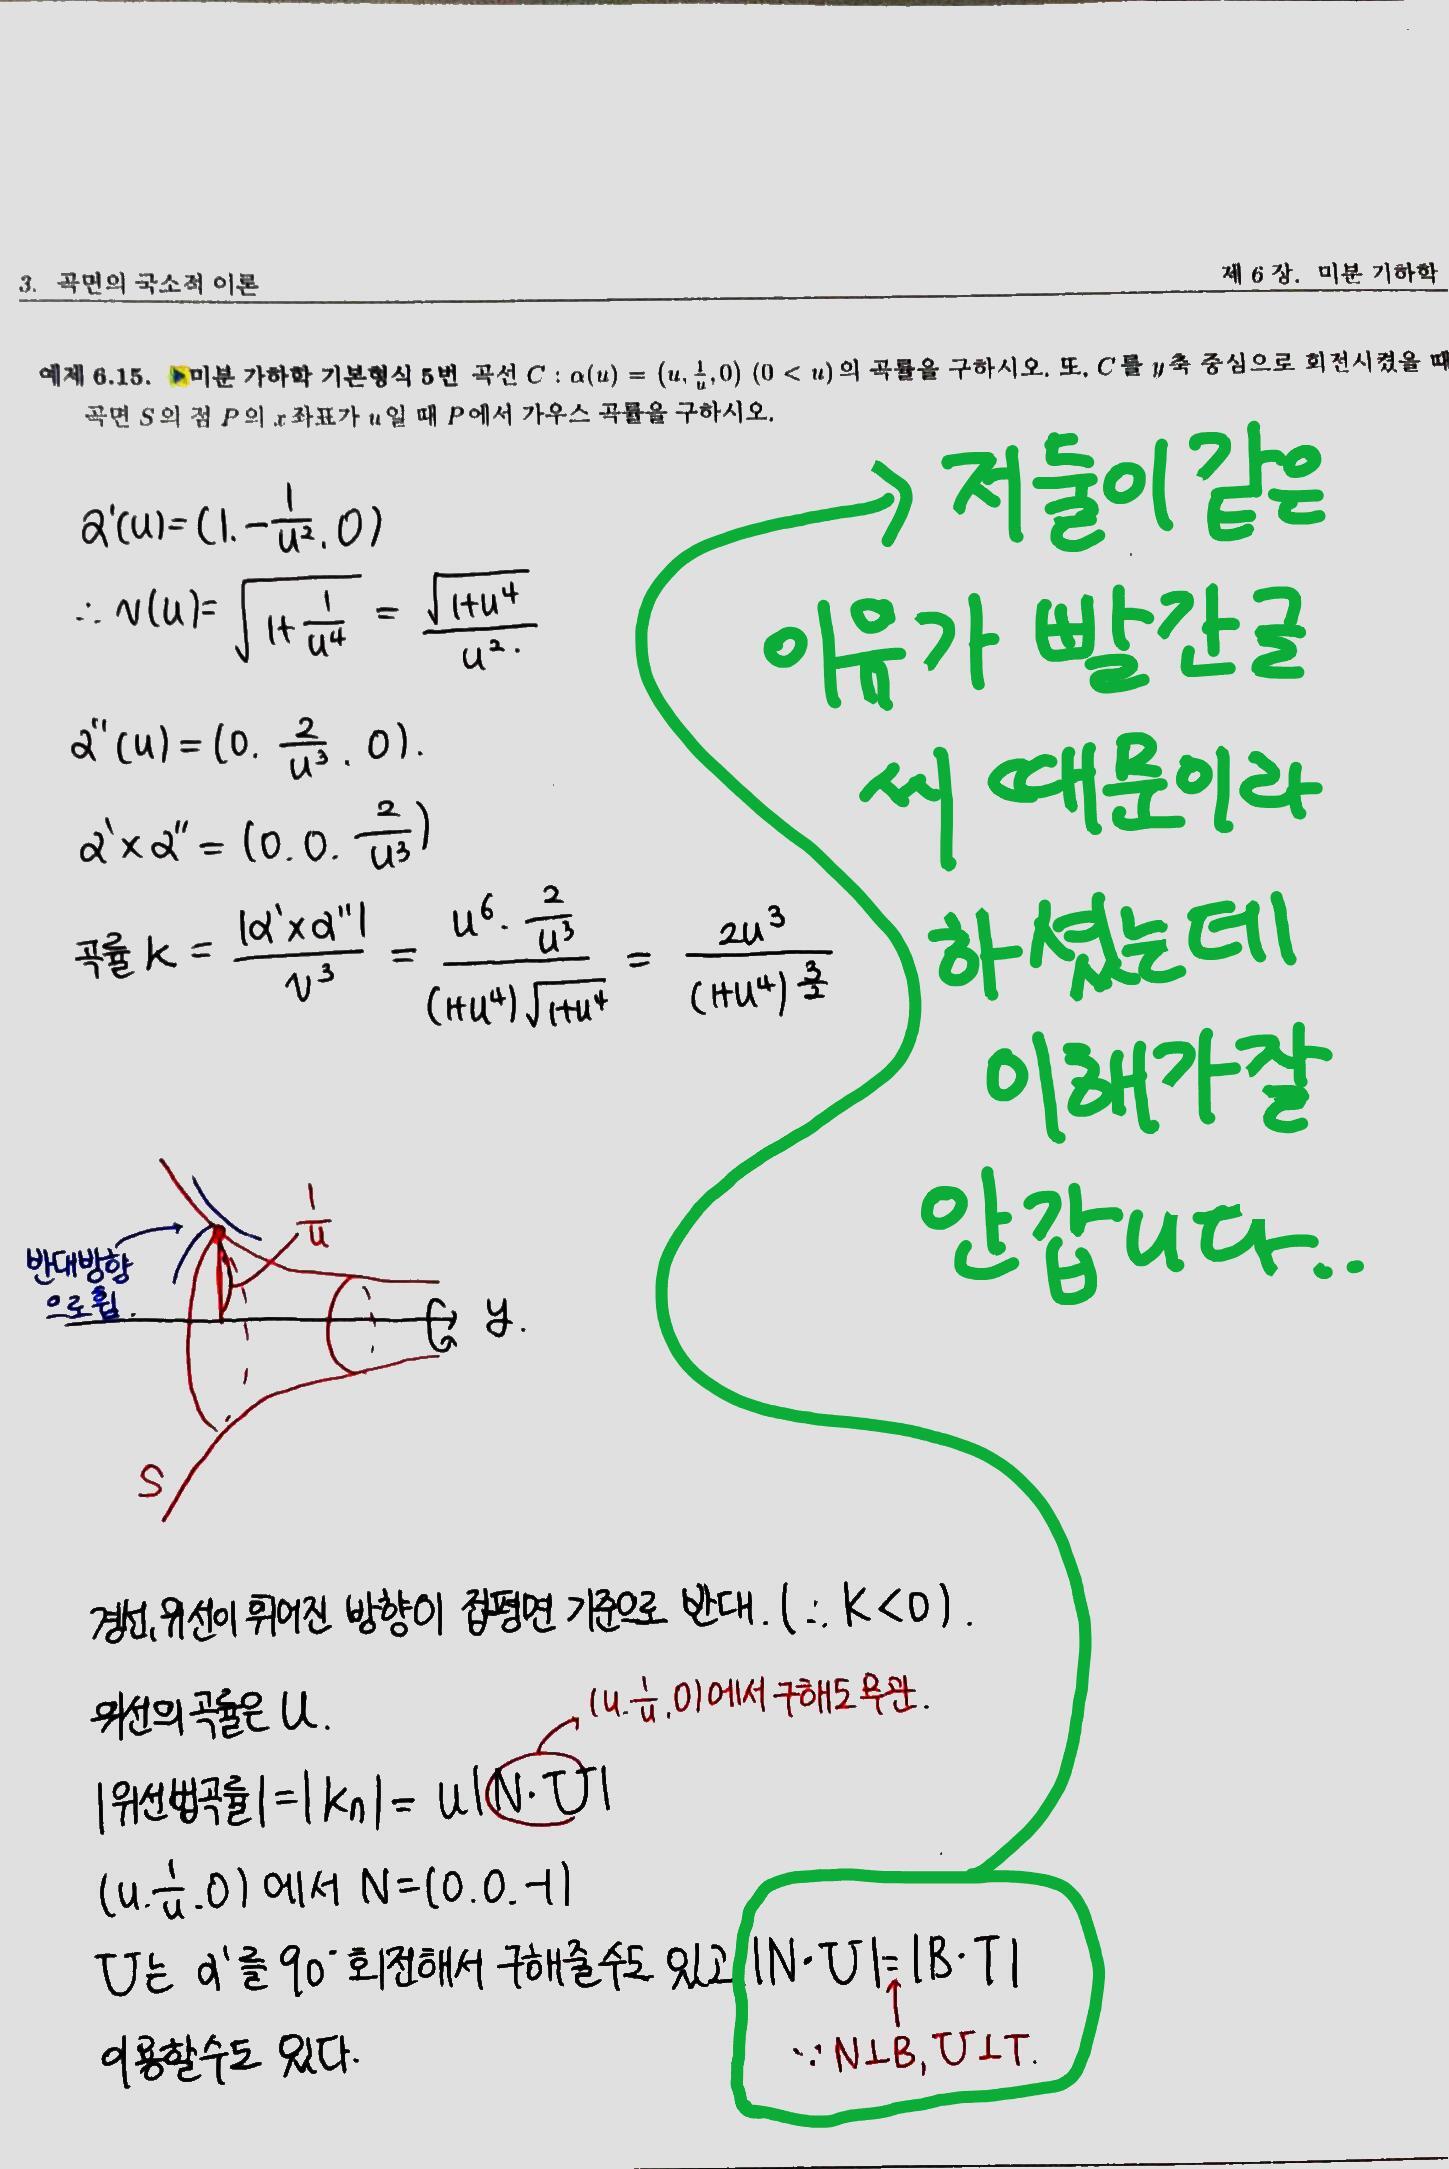 3. 곡면의 국소적 이론
제 6 장. 미분 기하학
예제 6.15. ▶미분 가하학 기본형식 5번 곡선 C : α(u) = (u, 1/u, 0) (0 < u)의 곡률을 구하시오. 또, C를 y축 중심으로 회전시켰을 때
곡면 S의 점 P의 x좌표가 u일 때 P에서 가우스 곡률을 구하시오.
α'(u)=(1. -1/u². 0)
∴ v(u)= √(1+1/u⁴) = √(1+u⁴)/u².
α''(u)=(0. 2/u³. 0).
α'×α''= (0. 0. 2/u³)
곡률 k = |α'×α''|/v³ = u⁶·2/u³/(1+u⁴)√(1+u⁴) = 2u³/(1+u⁴)^(3/2)
→ 저둘이 같은
이유가 빨간글
씨 때문이라
하셨는데
이해가 잘
안갑니다..
1/u
반대방향
으로 휨.
y.
S
경선,위선이 휘어진 방향이 접평면 기준으로 반대. (∴ K<0).
위선의 곡률은 u.
(u. 1/u. 0)에서 구해도 무관.
|위선법곡률|=|kn|= u|N·U|
(u. 1/u. 0) 에서 N=(0. 0. -1)
U는 α'를 90° 회전해서 구해줄수도 있고 |N·U|=|B·T|
이용할수도 있다.
∵ N⊥B, U⊥T.